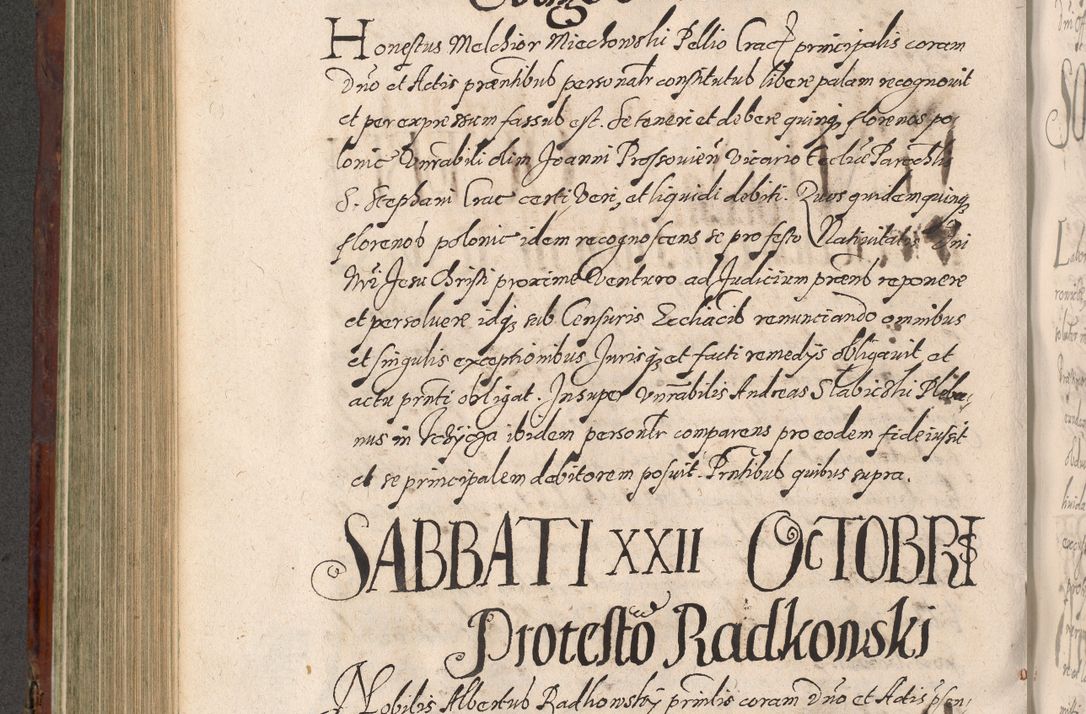 Honestus Melchior Miechowski Pellio Crac principalis coram
Dno et Actis prntibus personalr constitutus libere palam recognouit
et per expressum fassus est. Se teneri et debere quinq florenos po,
lonic Vnrabili olim Joanni Prossouien Vicario Eccliæ Parochlis
S. Stephani Crac certi Veri, et liquidi debiti. Quos quidem quinq
florenos polonic idem recognoscens se pro festo Natiuitatis Dni
Nri Jesu Christi proxime Venturo ad Judicium præns reponere
et persoluere idq sub Censuris Ecchiacis renunciando omnibus
et singulis exceptionibus Juris q et facti remedijs obligauit et
actu prnti obligat. Insuper Vnrabilis Andreas Slabicski Pleba,
nus in ibidem personlr comparens pro eodem fideiussit
et se principalem debitorem posuit. Prntibus quibus supra.
SABBATI XXII OCTOBRIS
Protesto Radkowski
Nobilis Albertus Radkowsky prinlis coram Dno et Actis psen,